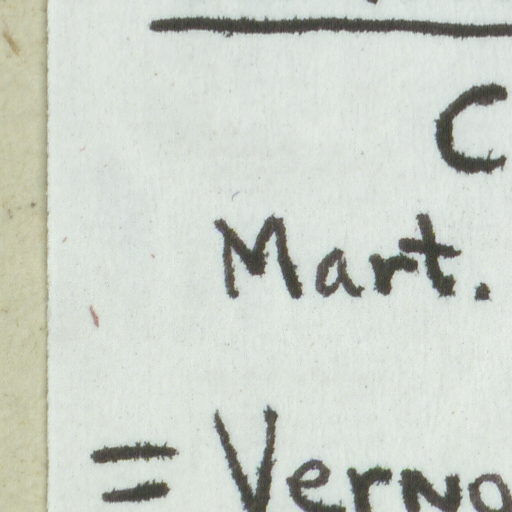 C
Mart.
= Verno